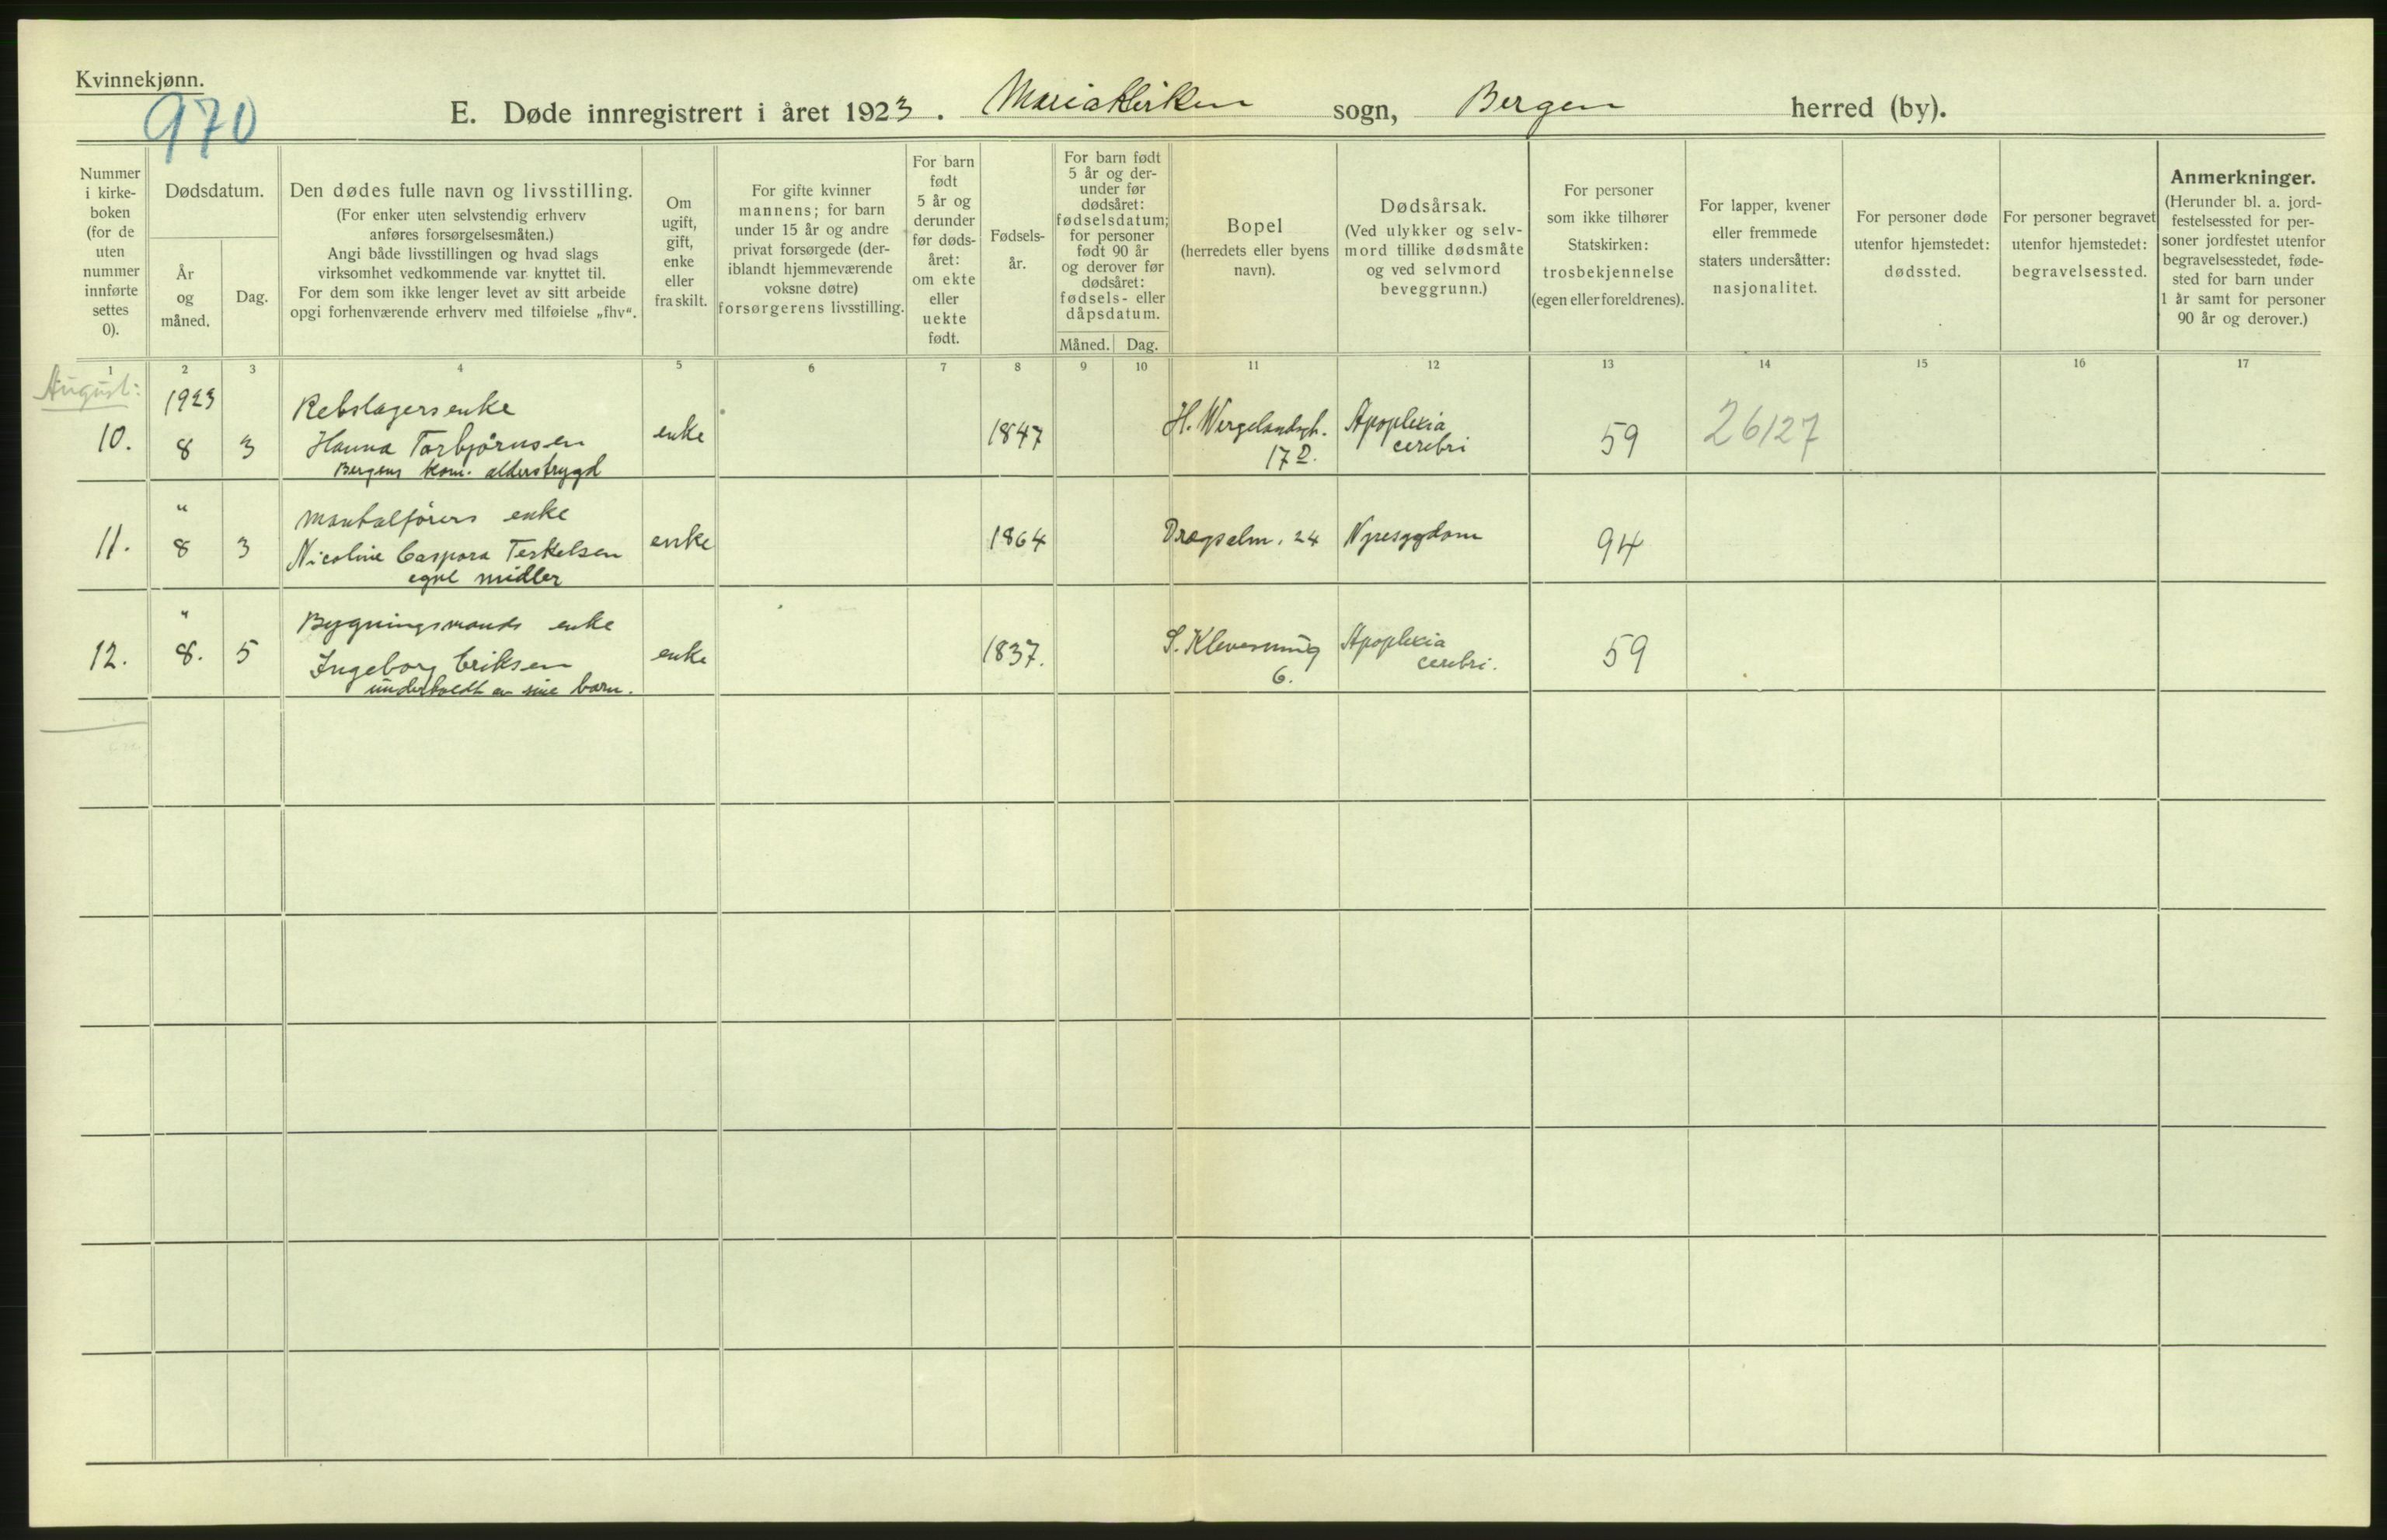 Kvinnekjønn.
970
E. Døde innregistrert i året 1923. Mariakirken sogn, Bergen herred (by).
Nummer i kirke-boken (for de uten nummer innførte settes 0).
Dødsdatum.
År og måned.
Dag.
Den dødes fulle navn og livsstilling.
(For enker uten selvstendig erhverv
anføres forsørgelsesmåten.)
Angi både livsstillingen og hvad slags
virksomhet vedkommende var knyttet til.
For dem som ikke lenger levet av sitt arbeide
opgi forhenværende erhverv med tilføielse „fhv“.
Om
ugift,
gift,
enke
eller
fraskilt.
For gifte kvinner
mannens; for barn
under 15 år og andre
privat forsørgede (der-
iblandt hjemmeværende
voksne døtre)
forsørgerens livsstilling.
For barn
født
5 år og
derunder
før døds-
året:
om ekte
eller
uekte
født.
Fødsels-
år.
For barn født
5 år og der-
under før
dødsåret:
fødselsdatum;
for personer
født 90 år
og derover før
dødsåret:
fødsels- eller
dåpsdatum.
Måned. Dag.
Bopel
(herredets eller byens
navn).
Dødsårsak.
(Ved ulykker og selv-
mord tillike dødsmåte
og ved selvmord
beveggrunn.)
For personer
som ikke tilhører
Statskirken:
trosbekjennelse
(egen eller foreldrenes).
For lapper, kvener
eller fremmede
staters undersåtter:
nasjonalitet.
For personer døde
utenfor hjemstedet:
dødssted.
For personer begravet
utenfor hjemstedet:
begravelsessted.
Anmerkninger.
(Herunder bl. a. jord-
festelsessted for per-
soner jordfestet utenfor
begravelsesstedet, føde-
sted for barn under
1 år samt for personer
90 år og derover.)
1 2 3 4 5 6 7 8 9 10 11 12 13 14 15 16 17
August:
1923 Rebslagers enke
10. 8 3 Hanna Torbjørnsen enke 1847 H. Wergelandsgt. 17 D. Apoplexia cerebri 59 26127
Bergens kom. alderstrygd
" Mantalførers enke
11. 8 3 Nicoline Caspara Terkelsen enke 1864 Dregsalm. 24 Nyresygdom 94
egne midler
" Bygningsmands enke
12. 8. 5 Ingeborg Eriksen enke 1837. S. Kleversmug 6. Apoplexia cerebri. 59
underholdt av sine barn.